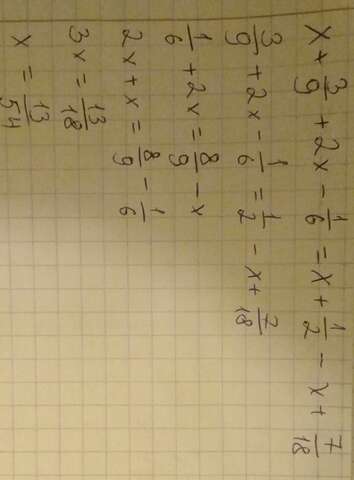 x + 3/9 + 2x - 1/6 = x + 1/2 - x + 7/18
3/9 + 2x - 1/6 = 1/2 - x + 7/18
1/6 + 2x = 8/9 - x
2x + x = 8/9 - 1/6
3x = 13/18
x = 13/54